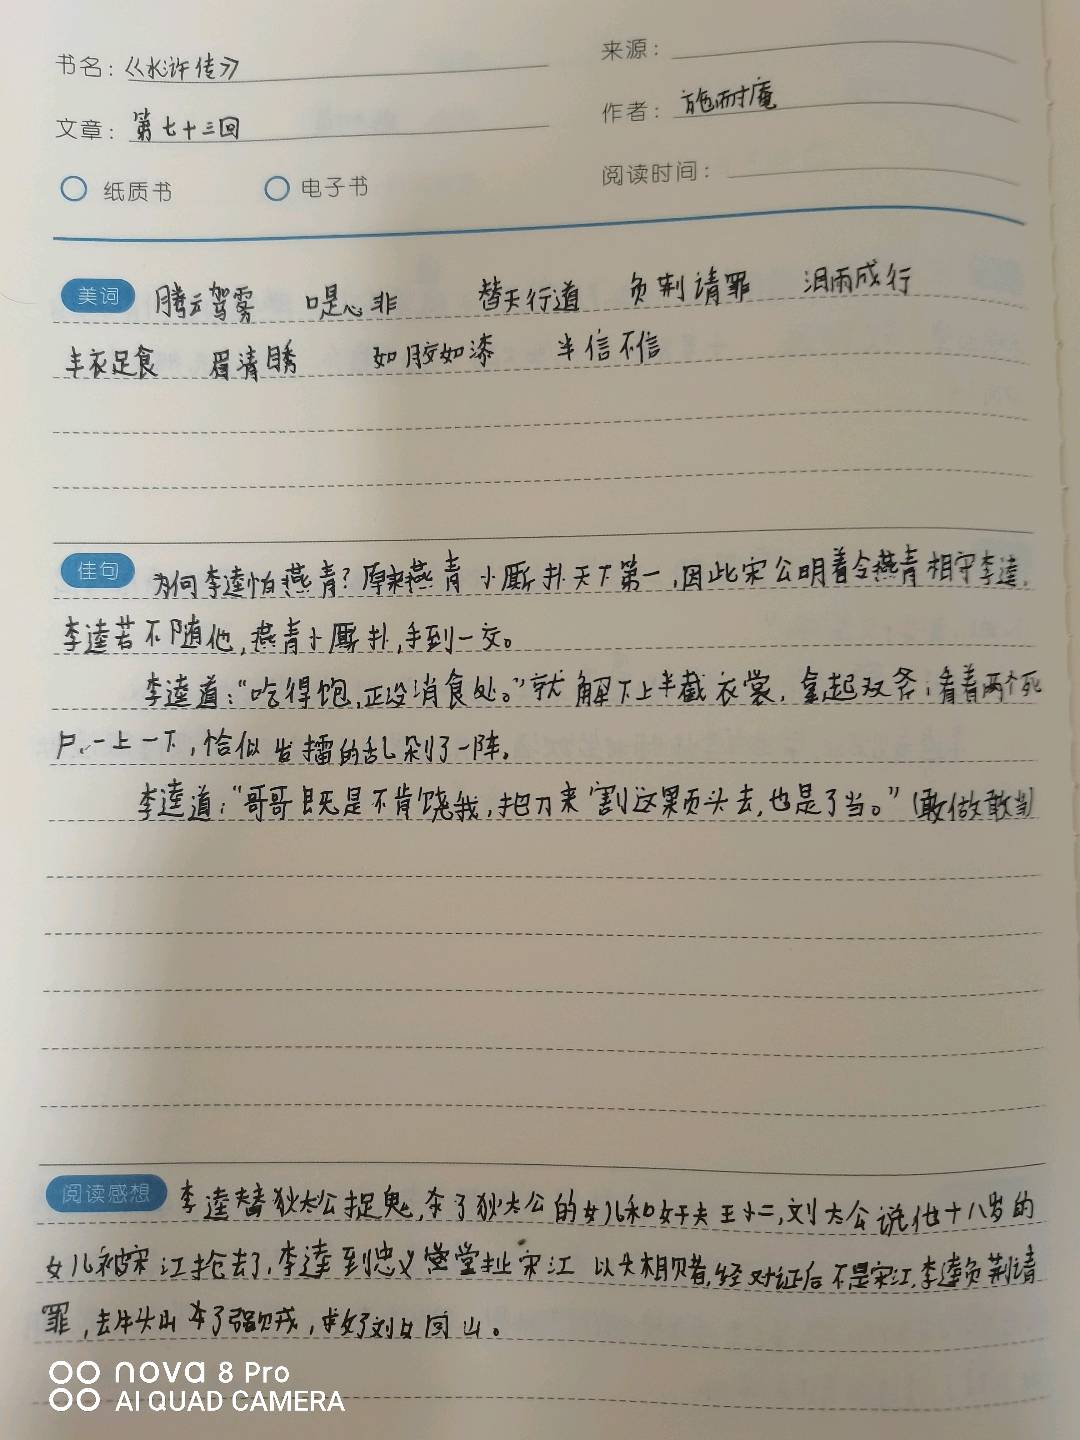 书名：《水浒传》
来源：
文章：第七十三回
作者：施耐庵
纸质书 电子书
阅读时间：
美词 腾云驾雾 口是心非 替天行道 负荆请罪 泪雨成行
丰衣足食 眉清目秀 如胶如漆 半信不信
佳句 为何李逵怕燕青？原来燕青小厮扑天下第一，因此宋公明着令燕青相守李逵，
李逵若不随他，燕青小厮扑，手到一交。
李逵道：“吃得饱，正没消食处。”就解下上半截衣裳，拿起双斧，看着两个死
尸，一上一下，恰似发擂的乱剁了一阵。
李逵道：“哥哥既是不肯饶我，把刀来割这颗头去，也是了当。”（敢做敢当）
阅读感想 李逵替狄太公捉鬼，杀了狄太公的女儿和奸夫王小二，刘太公说他十八岁的
女儿被宋江抢去了，李逵到忠义堂扯宋江以头相赌，经对证后不是宋江，李逵负荆请
罪，去牛头山杀了强贼，求了刘女回山。
nova 8 Pro
AI QUAD CAMERA